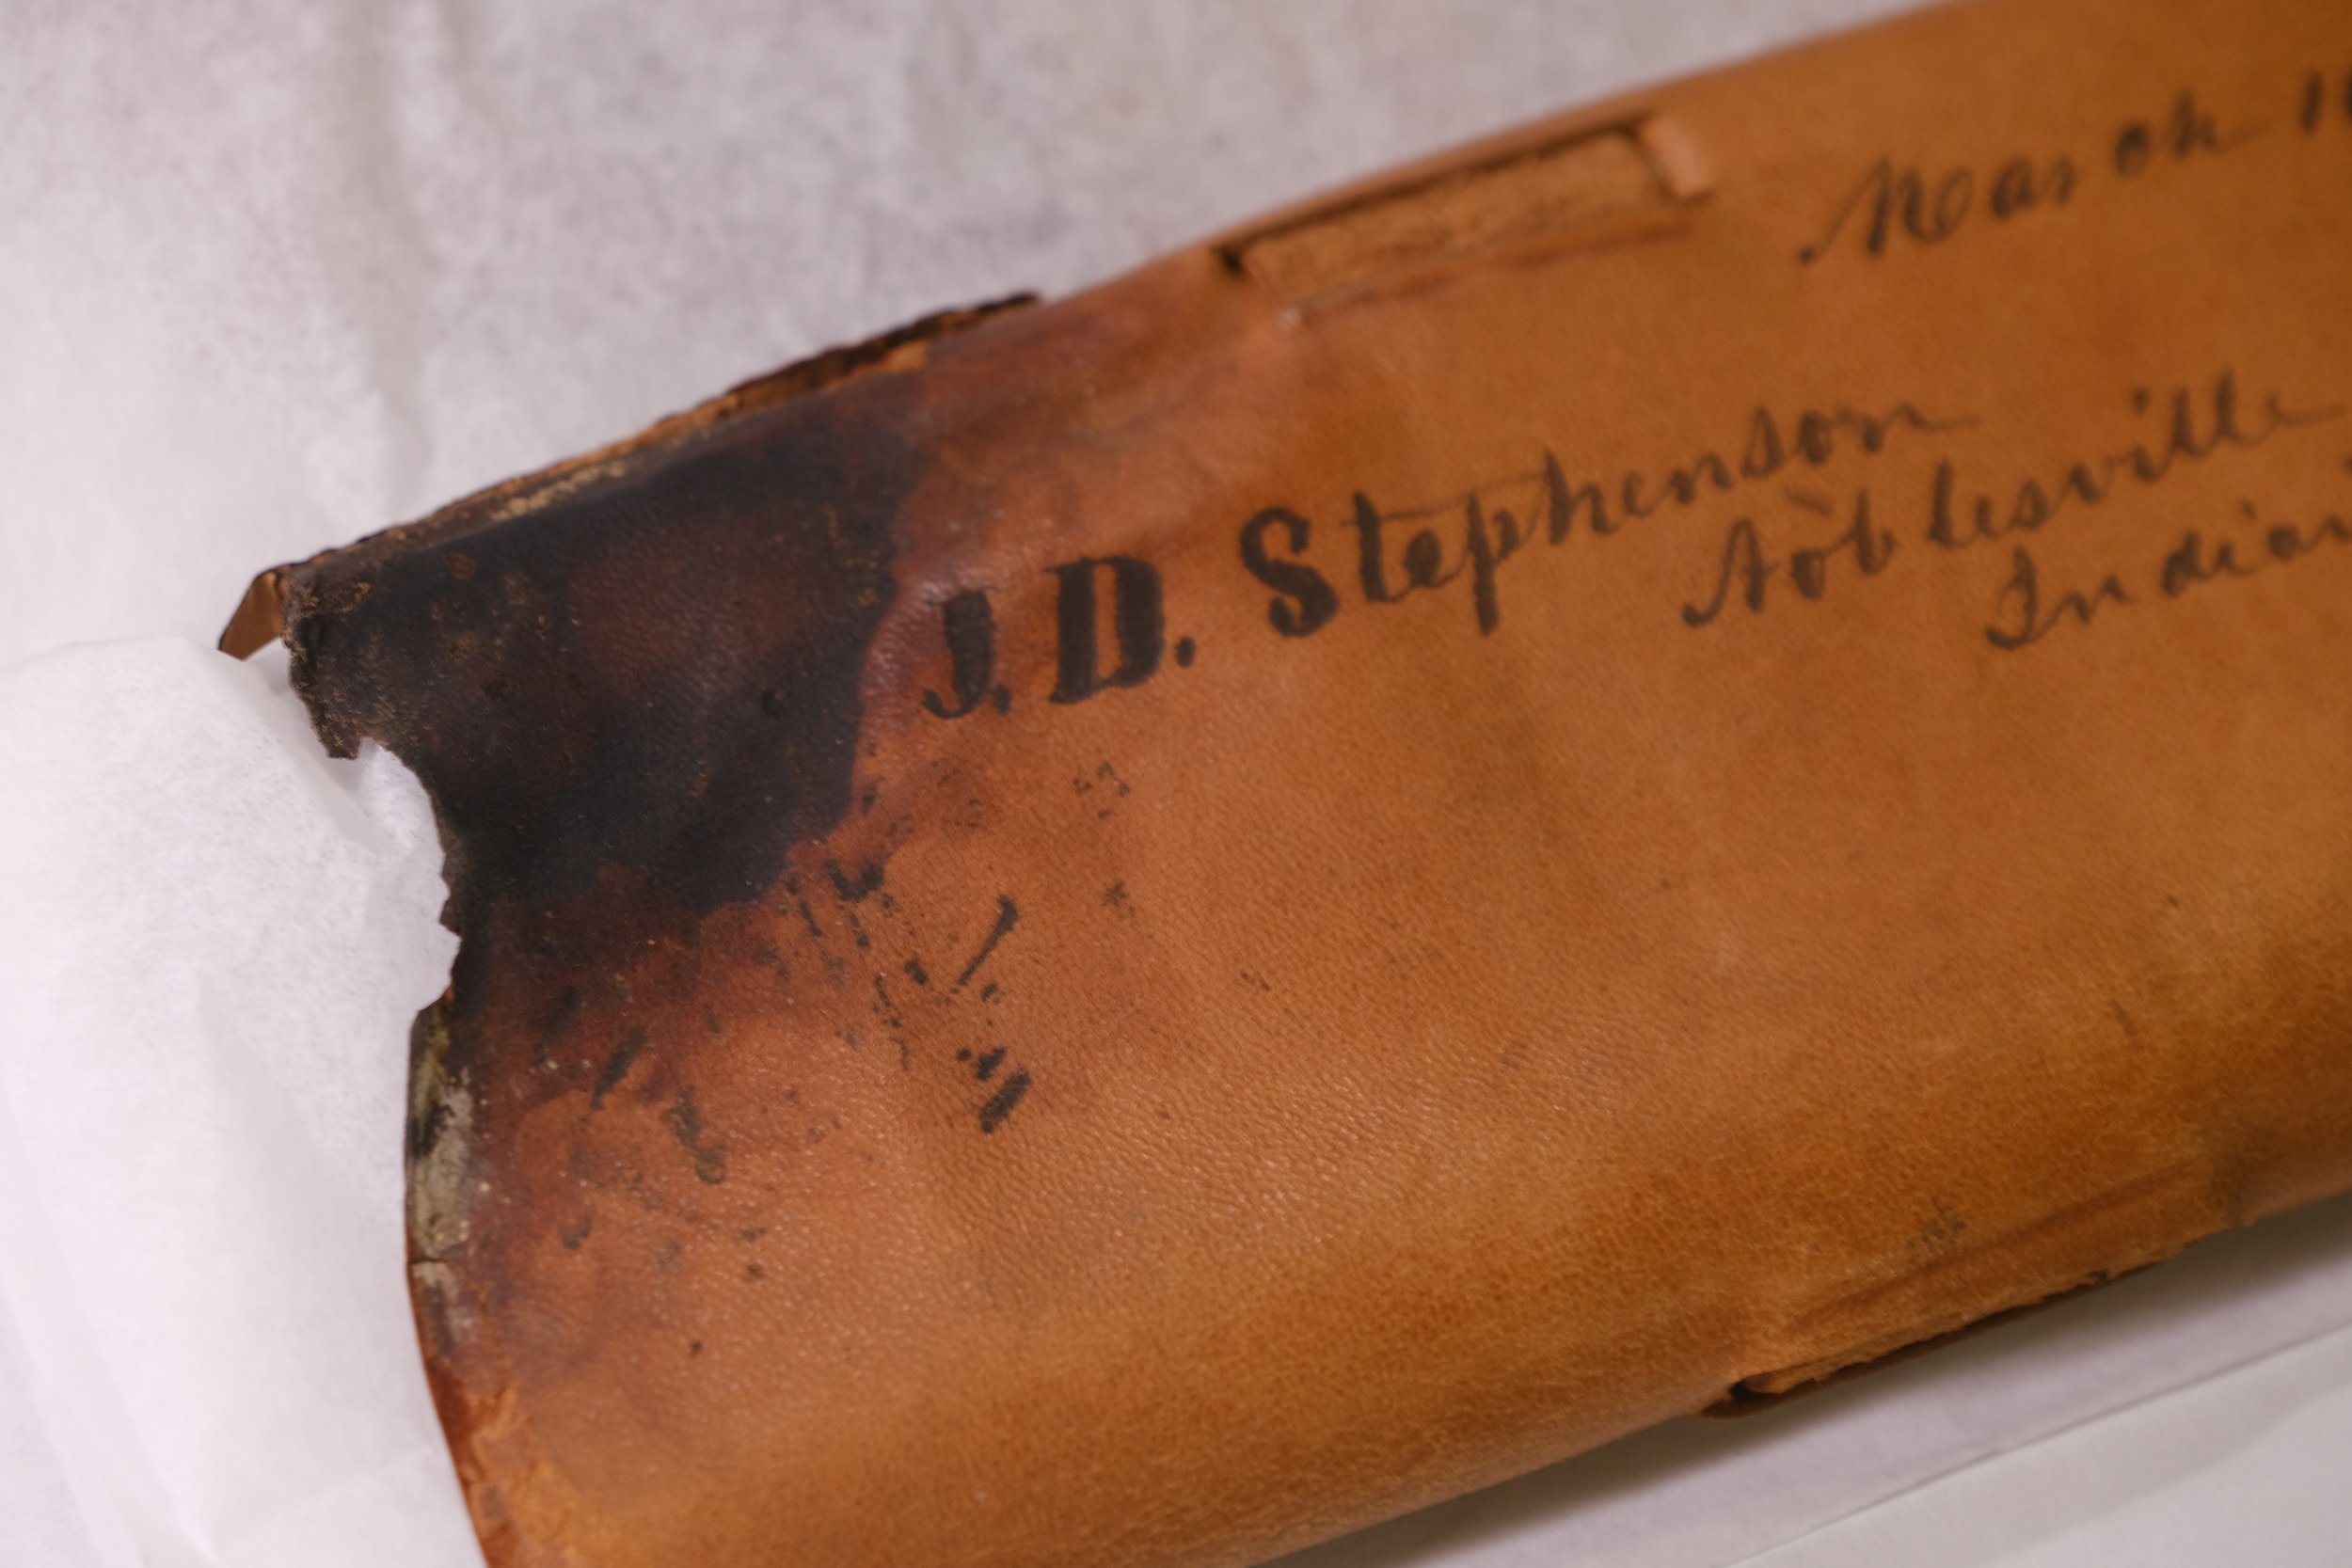 March
J. D. Stephenson
Noblesville
Indian